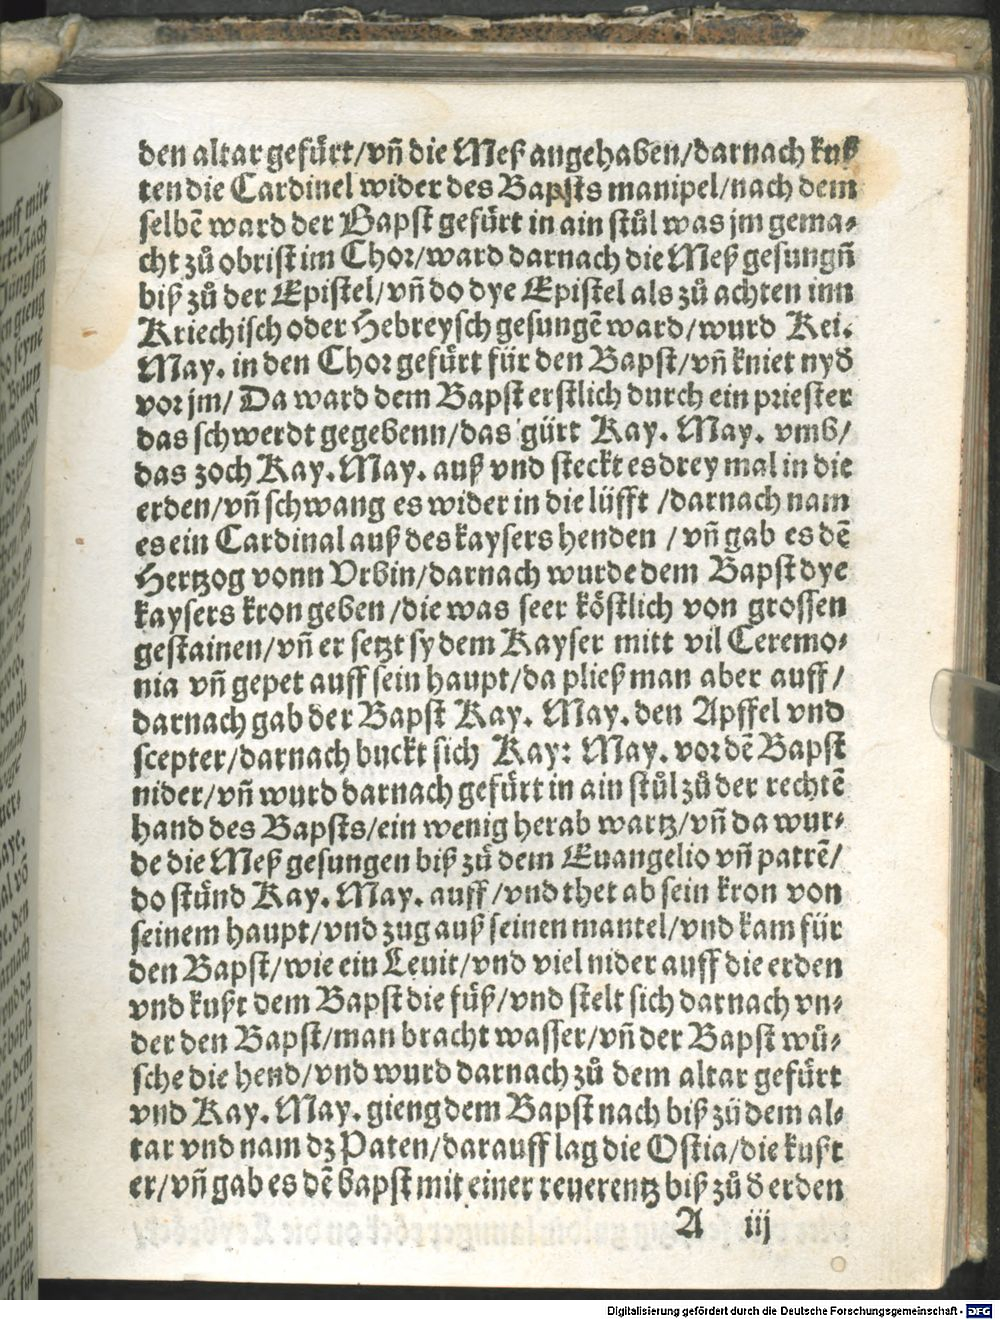 den altar gefürt/vn̄ die Meß angehaben/darnach kuß
ten die Cardinel wider des Bapsts manipel/nach dem
selbē ward der Bapst gefürt in ain stůl was jm gema⸗
cht zů obrist im Chor/ward darnach die Meß gesungn̄
biß zů der Epistel/vn̄ do dye Epistel als zů achten inn
Kriechisch oder Hebreysch gesungē ward/wurd Kei.
May. in den Chor gefürt für den Bapst/vn̄ kniet nyd̄
vor jm/ Da ward dem Bapst erstlich durch ein priester
das schwerdt gegebenn/das gürt Kay. May. vmb/
das zoch Kay. May. auß vnd steckt es drey mal in die
erden/vn̄ schwang es wider in die lüfft /darnach nam
es ein Cardinal auß des kaysers henden /vn̄ gab es dē
Hertzog vonn Vrbin/darnach wurde dem Bapst dye
kaysers kron geben/die was seer köstlich von grossen
gestainen/vn̄ er setzt sy dem Kayser mitt vil Ceremo⸗
nia vn̄ gepet auff sein haupt/da pließ man aber auff/
darnach gab der Bapst Kay. May. den Apffel vnd
scepter/darnach buckt sich Kay: May. vor dē Bapst
nider/vn̄ wurd darnach gefürt in ain stůl zů der rechtē
hand des Bapsts/ein wenig herab wartz/vn̄ da wur⸗
de die Meß gesungen biß zů dem Euangelio vn̄ patrē/
do stůnd Kay. May. auff/vnd thet ab sein kron von
seinem haupt/vnd zug auß seinen mantel/vnd kam für
den Bapst/wie ein Leuit/vnd viel nider auff die erden
vnd kußt dem Bapst die füß/vnd stelt sich darnach vn⸗
der den Bapst/man bracht wasser/vn̄ der Bapst wů⸗
sche die hend/vnd wurd darnach zů dem altar gefürt
vnd Kay. May. gieng dem Bapst nach biß zů dem al⸗
tar vnd nam dz Paten/darauff lag die Ostia/die kußt
er/vn̄ gab es dē bapst mit einer reuerentz biß zů d̄ erden
A iij
Digitalisierung gefördert durch die Deutsche Forschungsgemeinschaft - DFG